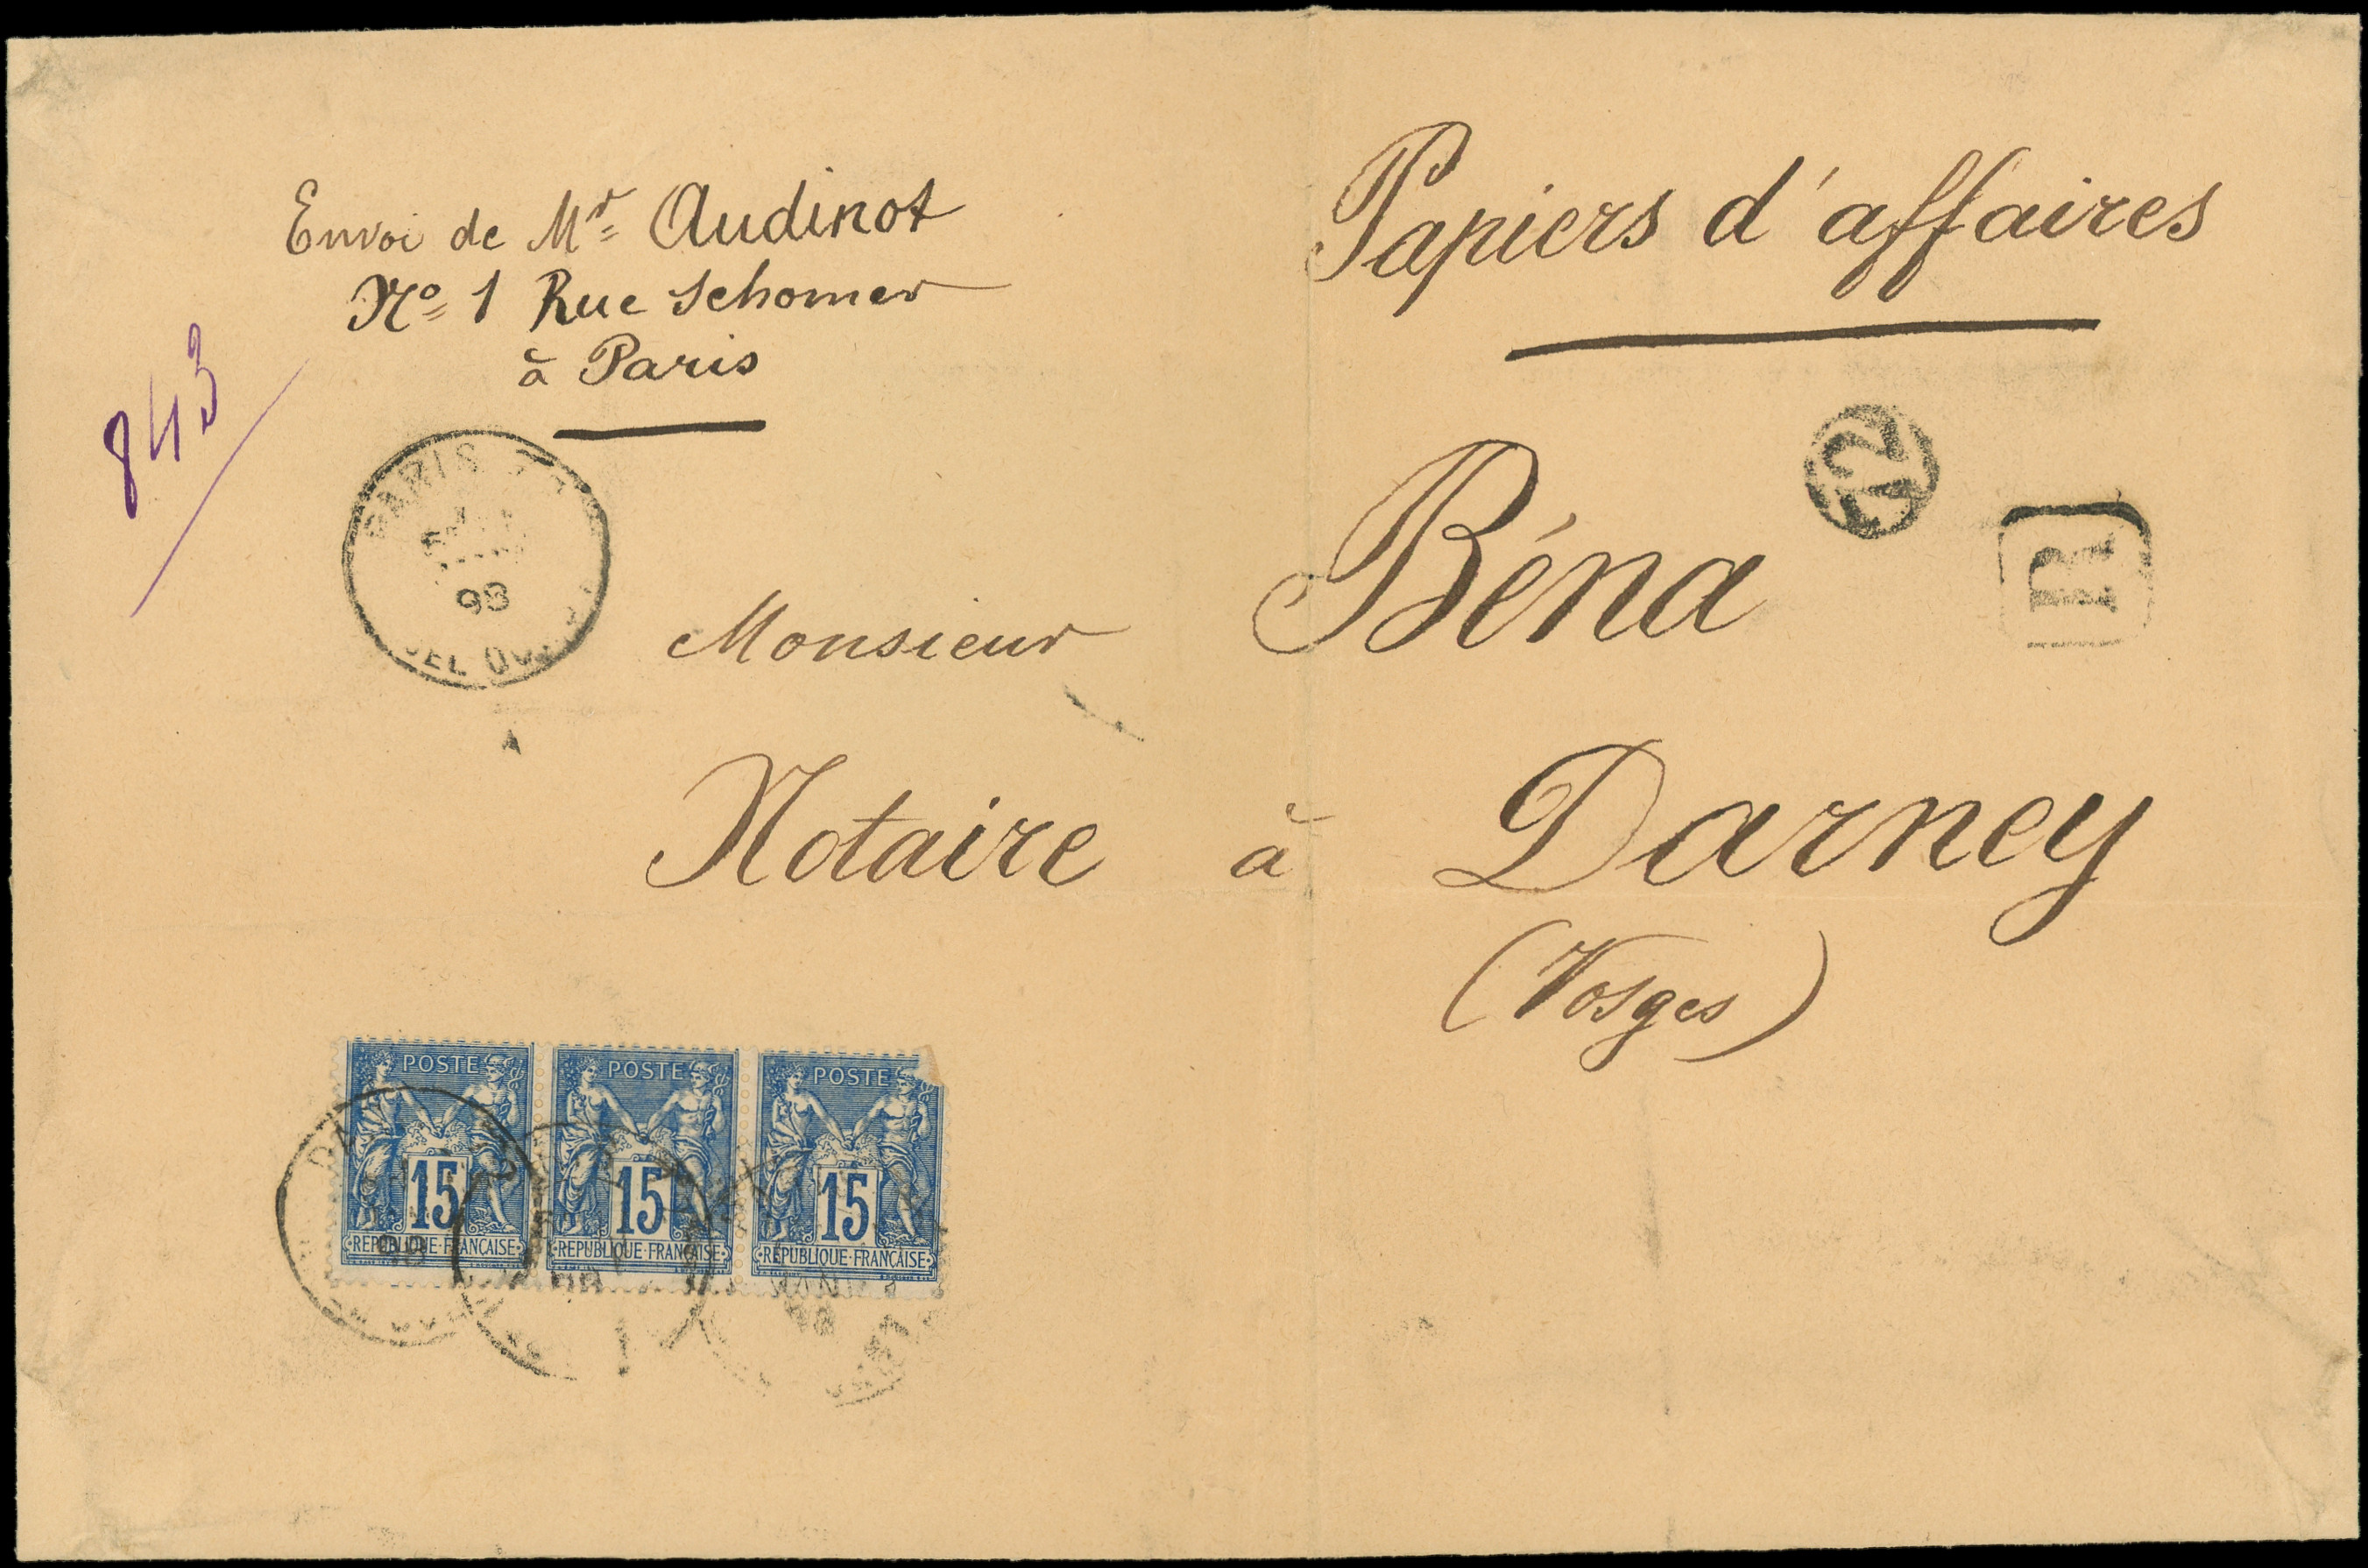 Envoi de Mr Audinot
No 1 Rue Schomer
à Paris
Papiers d'affaires
843
PARIS
98
12
R
Monsieur Béna
Notaire à Darney
(Vosges)
POSTE POSTE POSTE
15 15 15
REPUBLIQUE FRANÇAISE REPUBLIQUE FRANÇAISE REPUBLIQUE FRANÇAISE